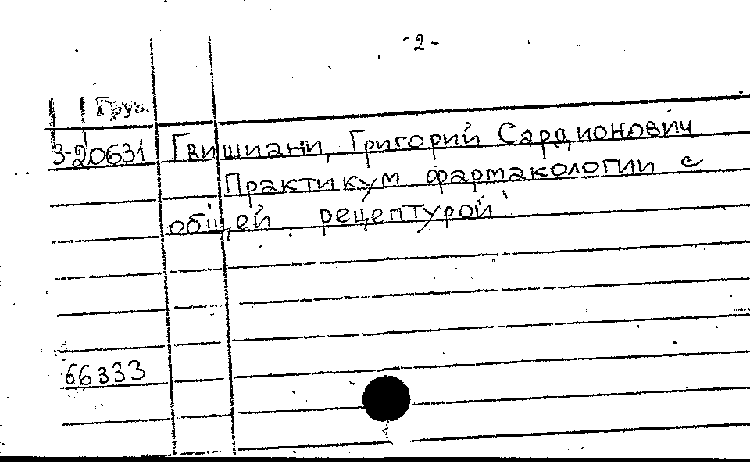 -2-
Груз.
3-20631 Гвишиани, Григорий Сардионович
Практикум фармакологии с
общей рецептурой
66333